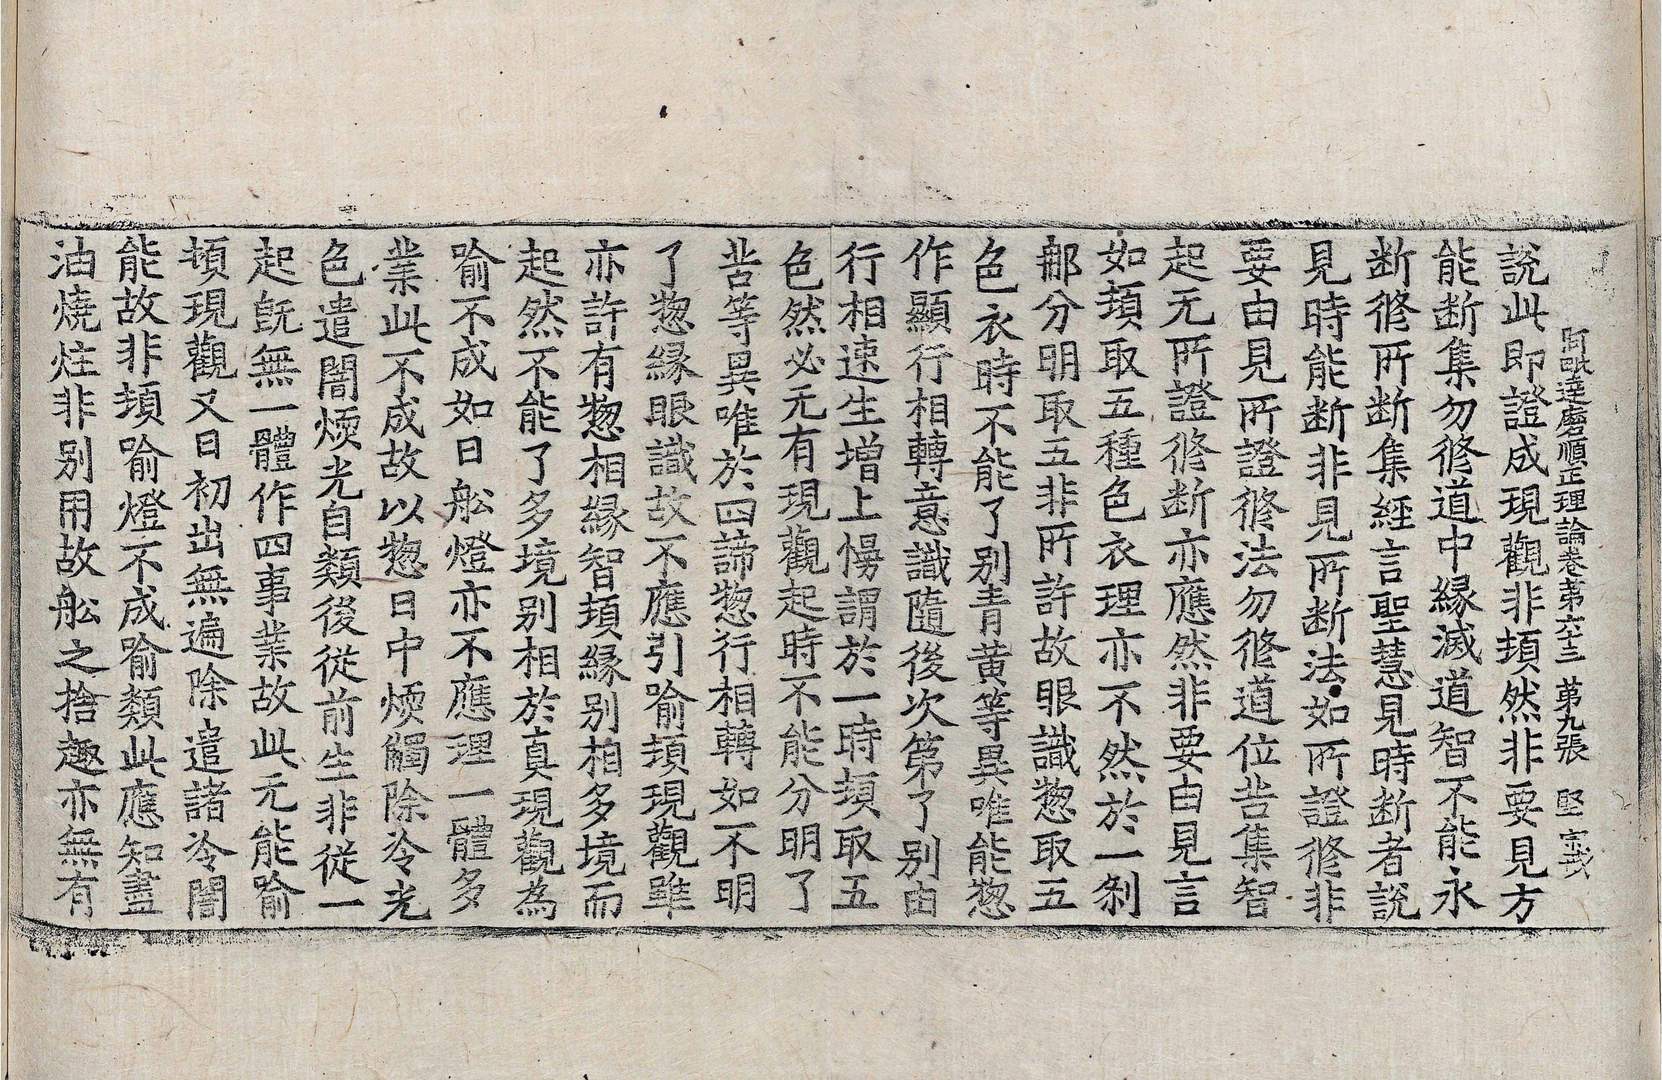 阿毗達磨順正理論卷第六十三 第九張 堅
說此即證成現觀非頓然非要見方
能断集勿修道中緣滅道智不能永
断修所断集經言聖慧見時断者說
見時能断非見所断法如所證修非
要由見所證修法勿修道位苦集智
起无所證修断亦應然非要由見言
如頓取五種色衣理亦不然於一刹
那分明取五非所許故眼識惣取五
色衣時不能了别青黄等異唯能惣
作顯行相轉意識隨後次第了别由
行相速生增上慢謂於一時頓取五
色然必无有現觀起時不能分明了
苦等異唯於四諦惣行相轉如不明
了惣緣眼識故不應引喻頓現觀雖
亦許有惣相緣智頓緣别相多境而
起然不能了多境别相於真現觀為
喻不成如日舩燈亦不應理一體多
業此不成故以惣日中煗觸除冷光
色遣闇煗光自類後從前生非從一
起旣無一體作四事業故此无能喻
頓現觀又日初出無遍除遣諸冷闇
能故非頓喻燈不成喻類此應知盡
油燒炷非别用故舩之捨趣亦無有